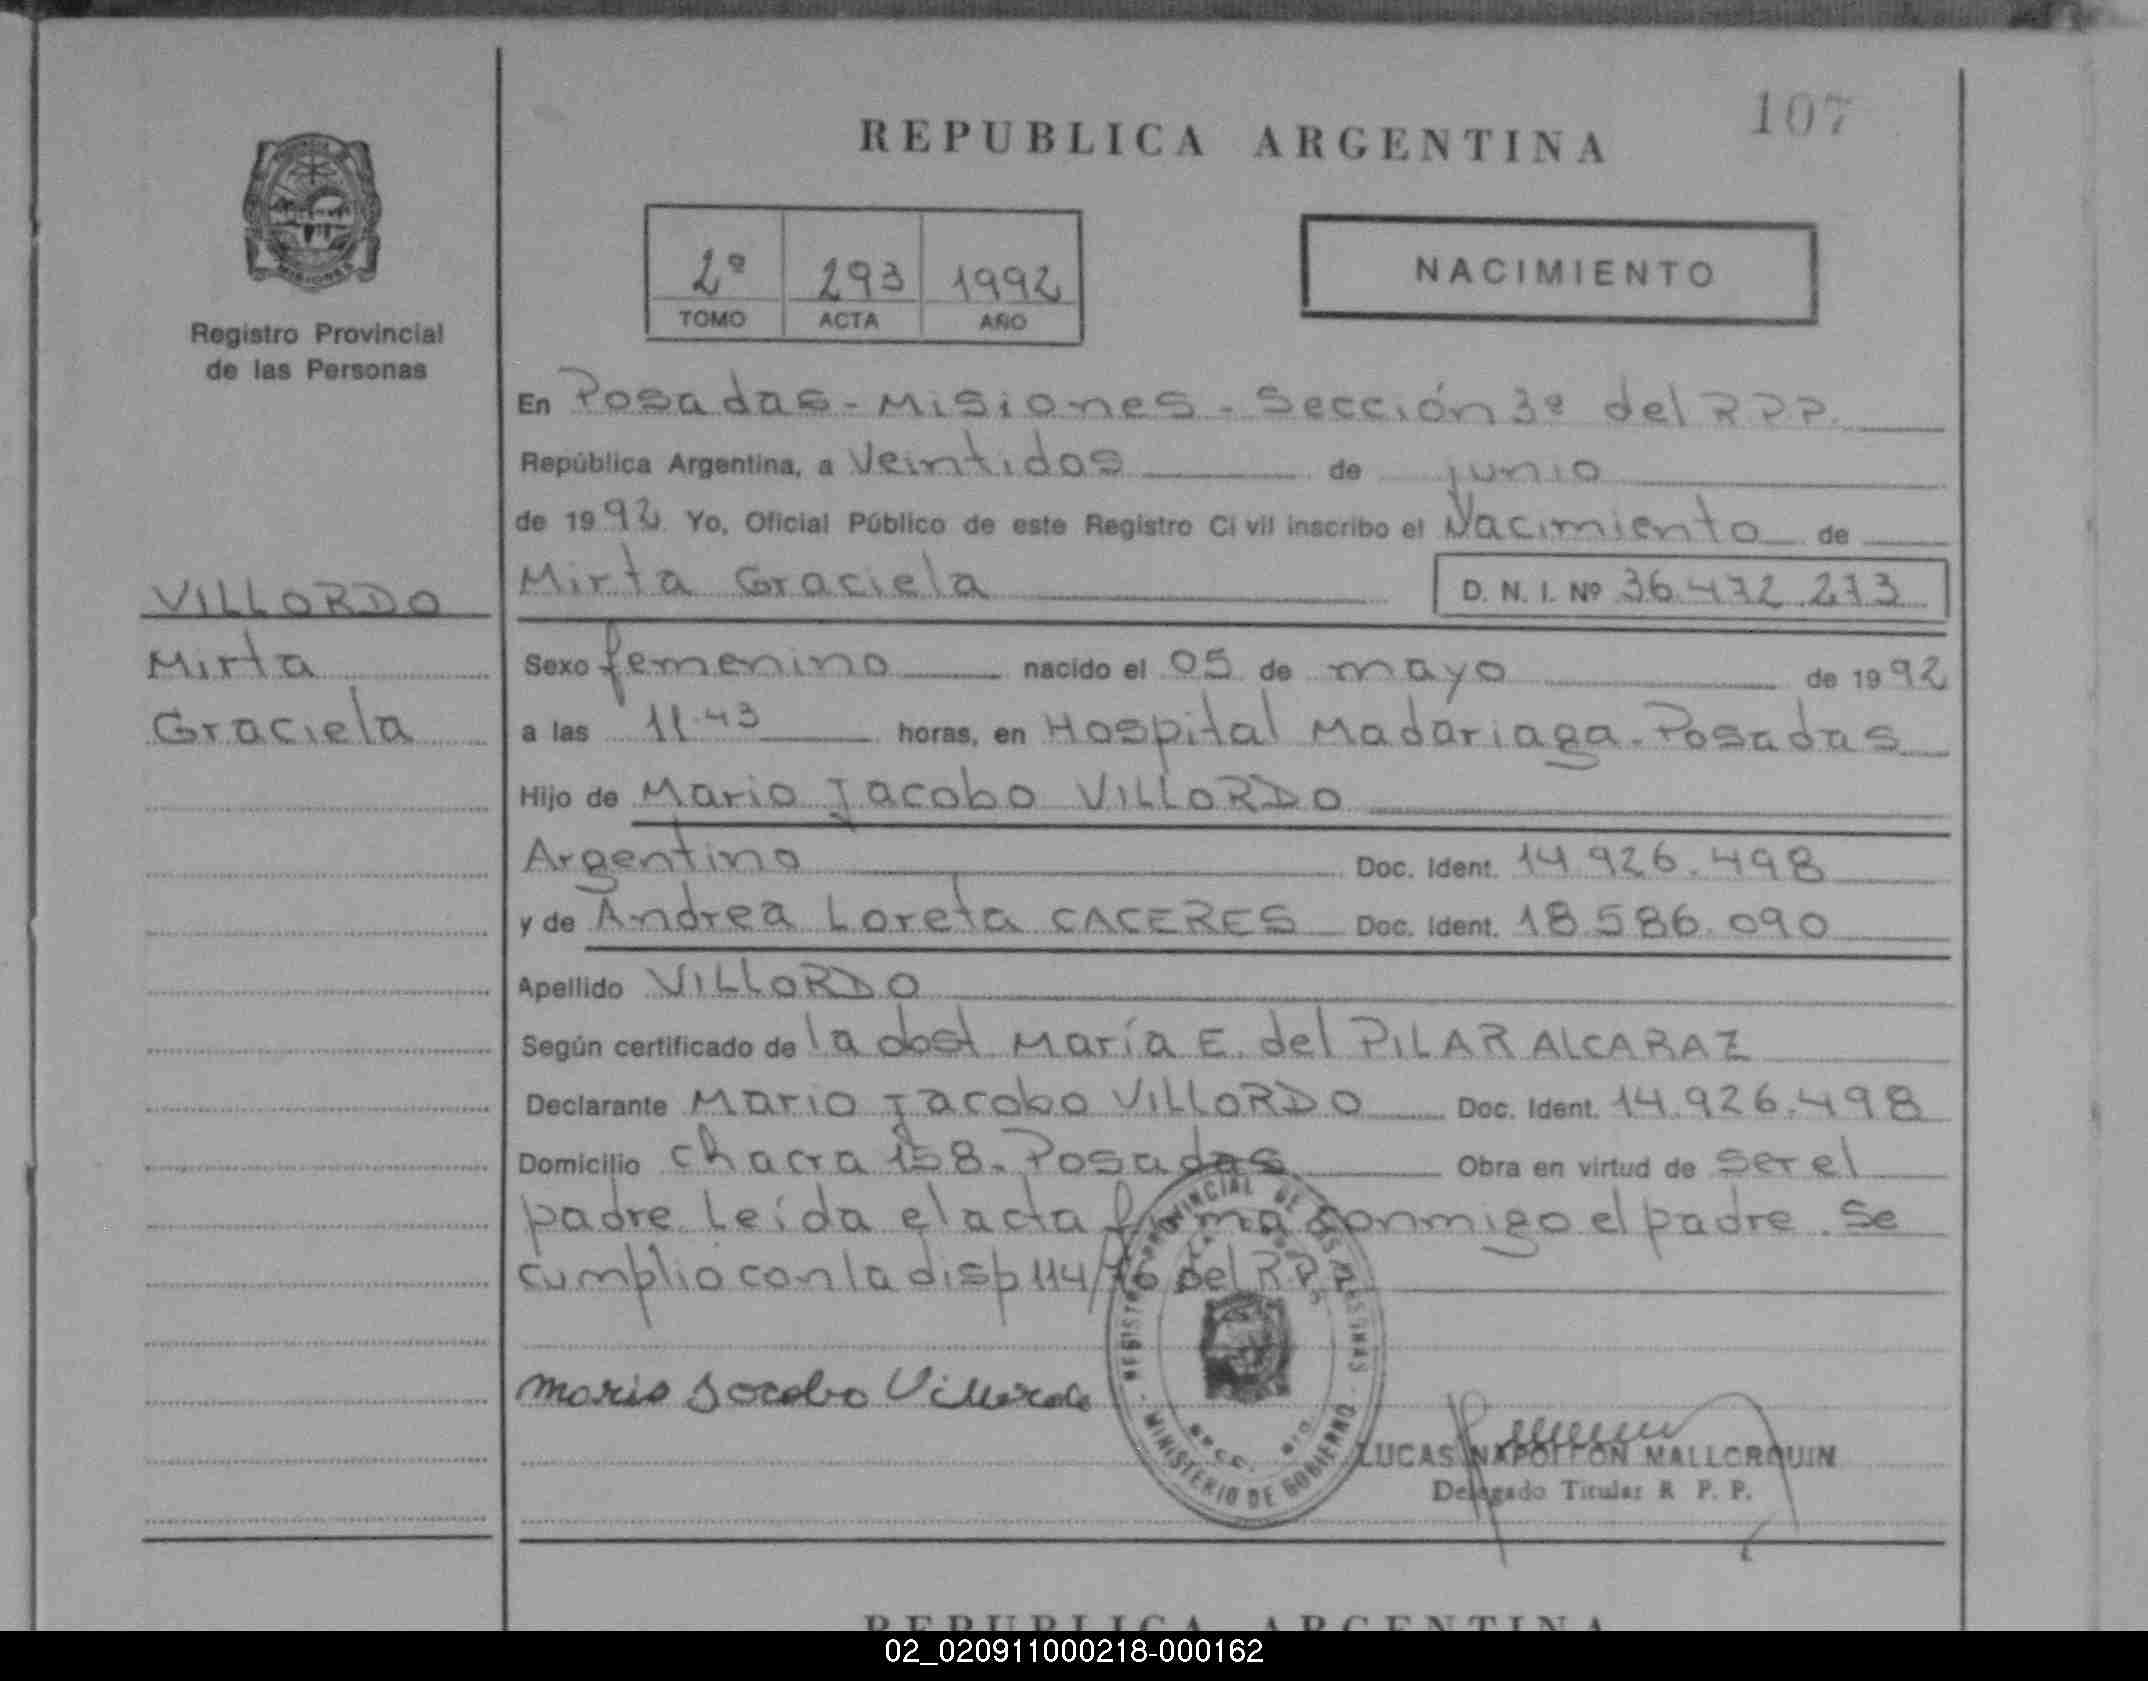 107
REPUBLICA ARGENTINA
2º 293 1992
TOMO ACTA AÑO
NACIMIENTO
Registro Provincial
de las Personas
En Posadas - Misiones - Sección 3º del R.P.P.
República Argentina, a Veintidos de junio
de 1992 Yo, Oficial Público de este Registro Civil inscribo el Nacimiento de
Mirta Graciela D. N. I. Nº 36.472.273
VILLORDO
Mirta
Graciela
Sexo femenino nacido el 05 de mayo de 1992
a las 11.43 horas, en Hospital Madariaga - Posadas
Hijo de Mario Jacobo VILLORDO
Argentino Doc. Ident. 14.926.498
y de Andrea Loreta CACERES Doc. Ident. 18.586.090
Apellido VILLORDO
Según certificado de la obst María E. del PILAR ALCARAZ
Declarante Mario Jacobo VILLORDO Doc. Ident. 14.926.498
Domicilio Chacra 158 - Posadas Obra en virtud de ser el
padre. Leída el acta firma conmigo el padre. Se
cumplio con la disp 114/ del R.P.P.
REGISTRO PROVINCIAL DE LAS PERSONAS
MINISTERIO DE GOBIERNO
Mario Jacobo Villordo
LUCAS NAPOLEON MALLORQUIN
Delegado Titular R. P. P.
REPUBLICA ARGENTINA
02_020911000218-000162